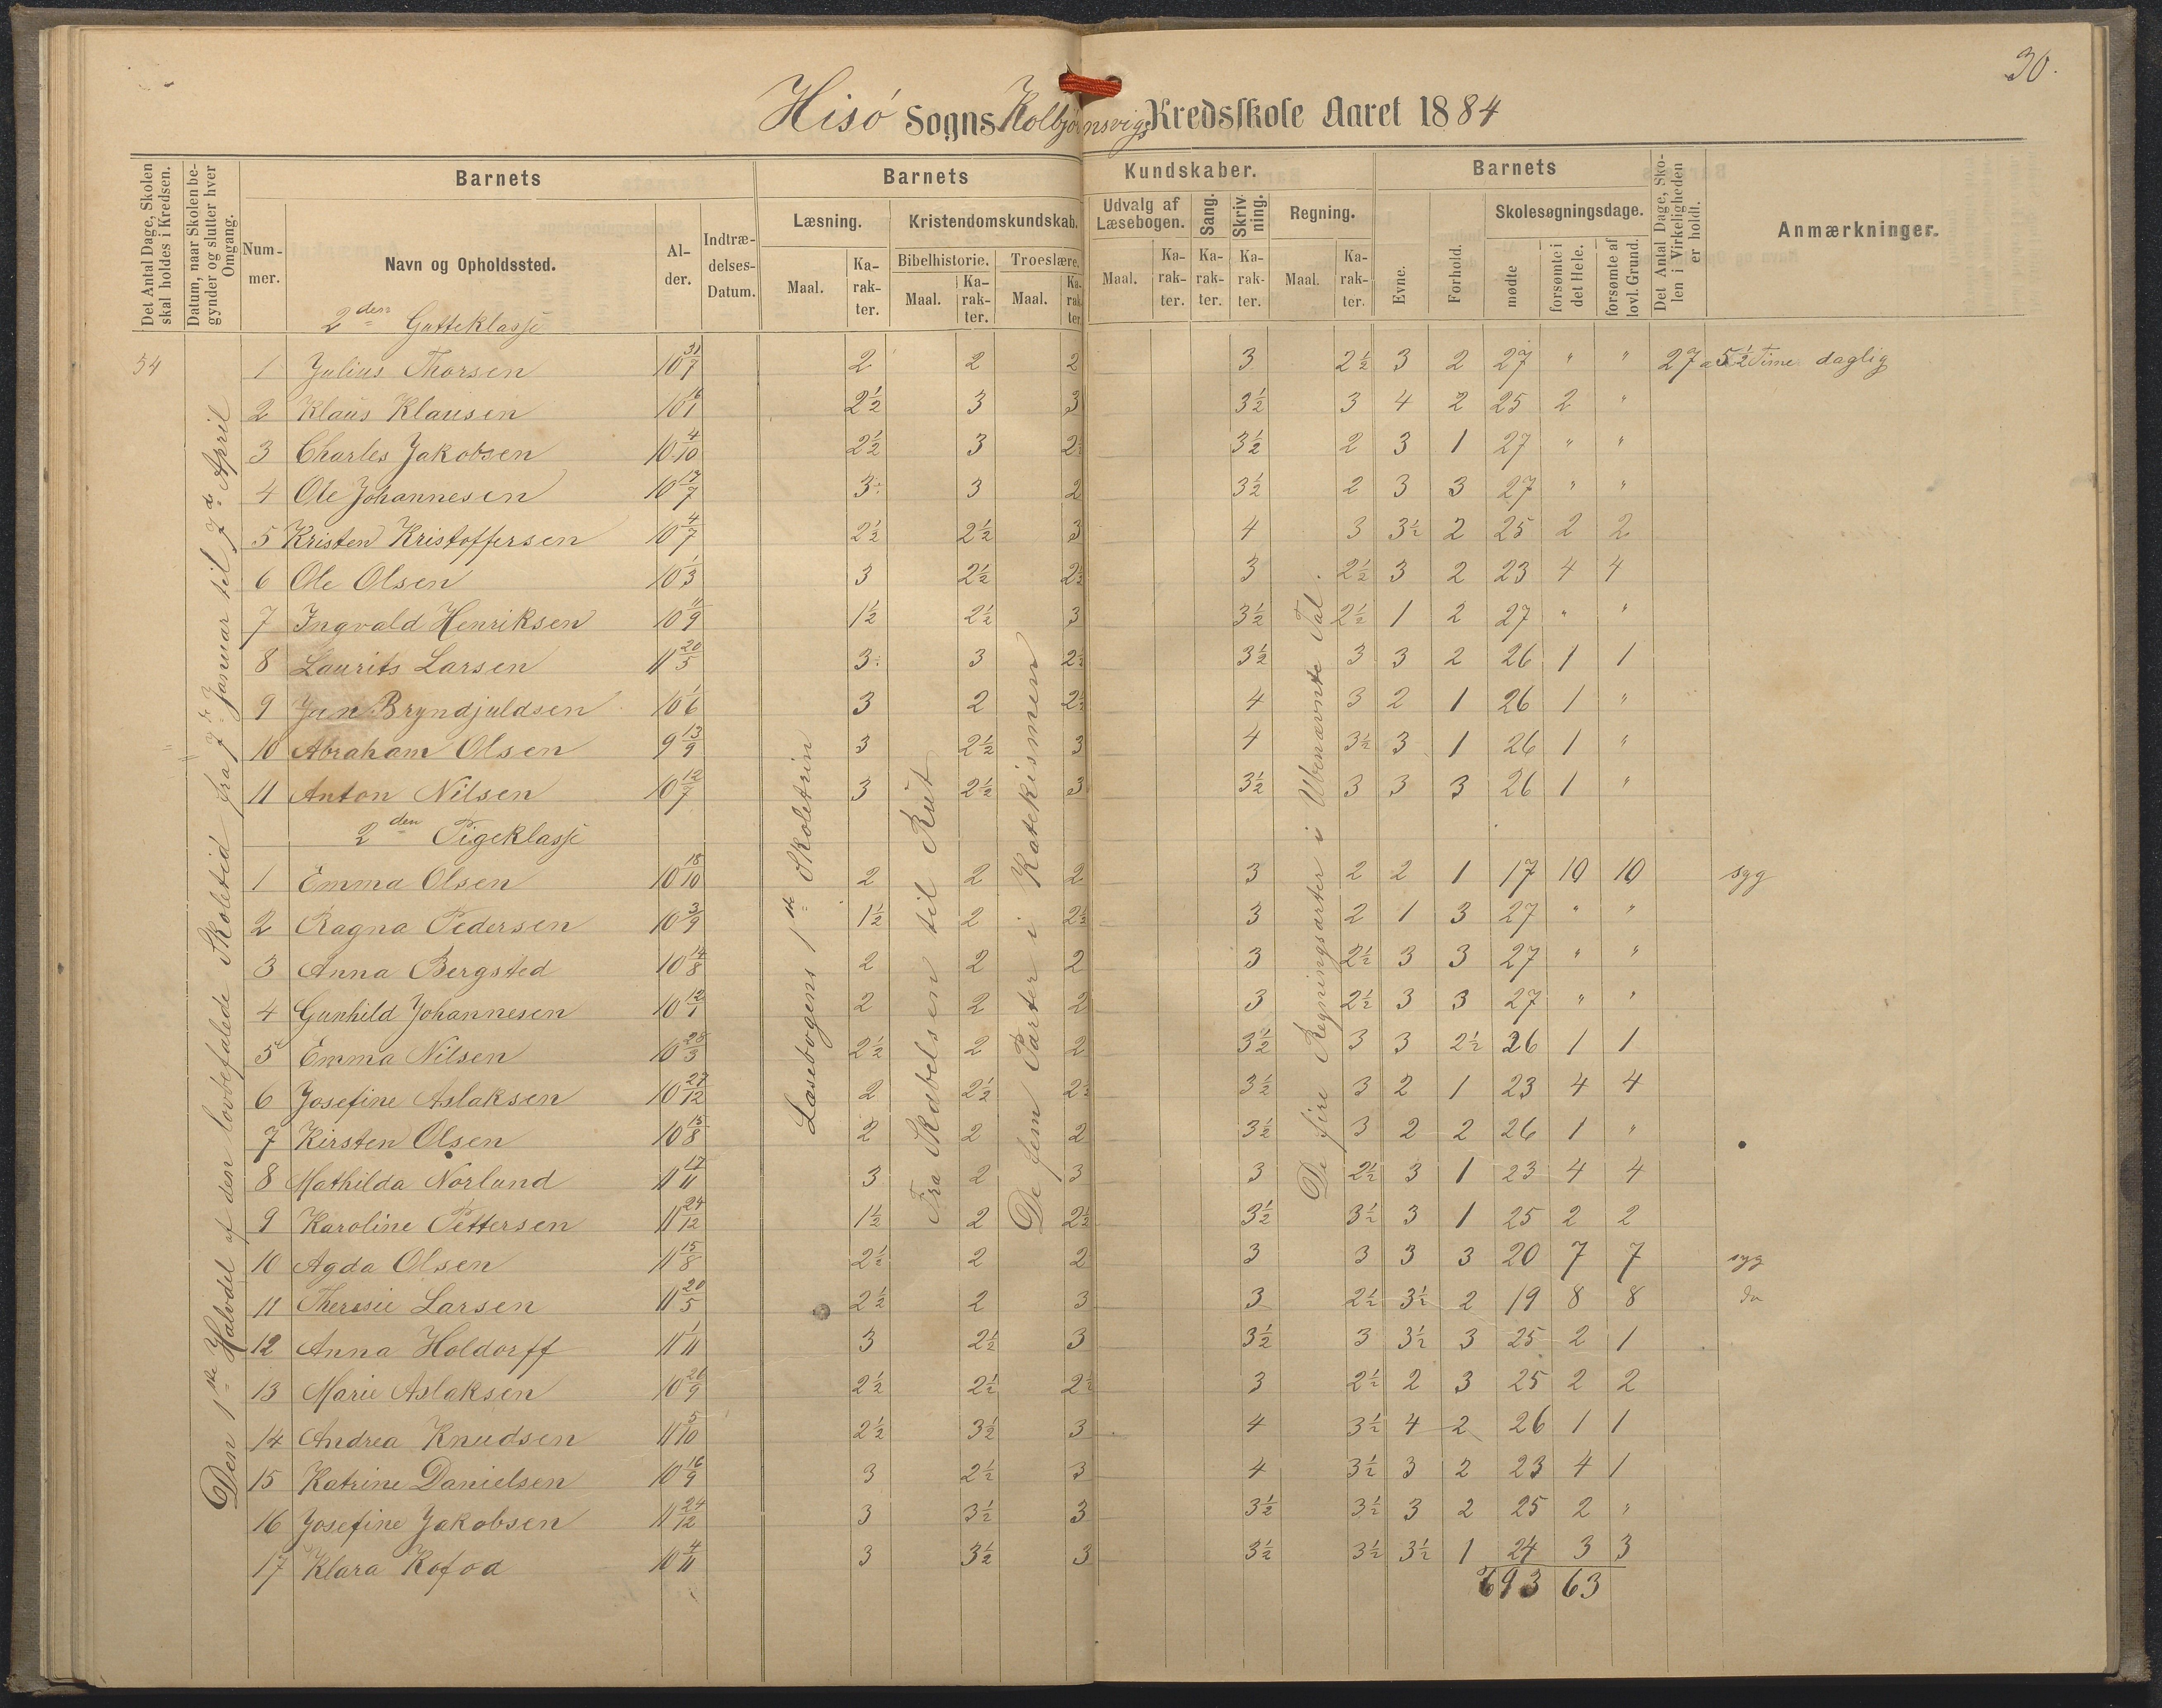 30.
Hisó Sogns Kolbjørnsvigs Kredsskole Aaret 1884
Det Antal Dage, Skolen skal holdes i Kredsen.
Datum, naar Skolen begynder og slutter hver Omgang.
Barnets
Nummer.
Navn og Opholdssted.
Alder.
Indtrædelses-Datum.
Barnets Kundskaber.
Læsning.
Maal.
Karakter.
Kristendomskundskab.
Bibelhistorie.
Maal.
Karakter.
Troeslære.
Maal.
Karakter.
Udvalg af Læsebogen.
Maal.
Karakter.
Sang.
Karakter.
Skrivning.
Karakter.
Regning.
Maal.
Karakter.
Barnets
Evne.
Forhold.
Skolesøgningsdage.
mødte
forsømte i det Hele.
forsømte af lovl. Grund.
Det Antal Dage, Skolen i Virkeligheden er holdt.
Anmærkninger.
2den Gutteklasse
54 1 Julius Thorsen 10 31/7 2 2 2 3 2½ 3 2 27 " " 27 a 5½ Time daglig
2 Klaus Klausen 10 16/1 2½ 3 3 3½ 3 4 2 25 2 "
3 Charles Jakobsen 10 4/10 2½ 3 2½ 3½ 2 3 1 27 " "
4 Ole Johannesen 10 17/7 3÷ 3 2 3½ 2 3 3 27 " "
5 Kristen Kristoffersen 10 4/7 2½ 2½ 3 4 3 3½ 2 25 2 2
6 Ole Olsen 10 1/3 3 2½ 2½ 3 2½ 3 2 23 4 4
7 Ingvald Henriksen 10 11/9 1½ 2½ 3 3½ 2½ 1 2 27 " "
8 Laurits Larsen 11 20/5 3÷ 3 2½ 3½ 3 3 2 26 1 1
9 Jen Bryndjuldsen 10 1/6 3 2 2½ 4 3 2 1 26 1 "
10 Abraham Olsen 9 13/9 3 2½ 3 4 3½ 3 1 26 1 "
11 Anton Nilsen 10 12/7 3 2½ 3 3½ 3 3 3 26 1 "
2den Pigeklasse
1 Emma Olsen 10 18/10 2 2 2 3 2 2 1 17 10 10 syg
2 Ragna Pedersen 10 3/9 1½ 2 2½ 3 2 1 3 27 " "
3 Anna Bergsted 10 14/8 2 2 2 3 2½ 3 3 27 " "
4 Gunhild Johannesen 10 12/1 2 2 2 3 2½ 3 3 27 " "
5 Emma Nilsen 10 28/3 2½ 2 2 3½ 3 3 2½ 26 1 1
6 Josefine Aslaksen 10 27/12 2 2½ 2½ 3½ 3 2 1 23 4 4
7 Kirsten Olsen 10 15/8 2 2 2 3½ 3 2 2 26 1 "
8 Mathilda Norlund 11 17/11 3 2 3 3 2½ 3 1 23 4 4
9 Karoline Pettersen 11 24/12 1½ 2 2½ 3½ 3½ 3 1 25 2 2
10 Agda Olsen 11 15/8 2½ 2 2 3 3 3 3 20 7 7 syg
11 Theresie Larsen 11 20/5 2½ 2 3 3 2½ 3½ 2 19 8 8 do
12 Anna Holdorff 11 1/11 3 2½ 3 3½ 3 3½ 3 25 2 1
13 Marie Aslaksen 10 26/9 2½ 2½ 2½ 3 2½ 2 3 25 2 2
14 Andrea Knudsen 11 5/10 2½ 3½ 3 4 3½ 4 2 26 1 1
15 Katrine Danielsen 10 16/9 3 2½ 3 4 3½ 3 2 23 4 1
16 Josefine Jakobsen 11 24/12 3 3½ 3 3½ 3½ 3 2 25 2 "
17 Klara Kofod 10 4/11 3 3½ 3 3½ 3½ 3½ 1 24 3 3
693 63
Den 1ste Halvdel af den lovbefalede Skoletid fra 7de Januar til 7de April
Læsebogens 1ste Skoletrin
Fra Skabelsen til Rut
De fem Parter i Katekismen
De fire Regningsarter i Ubenævnte Tal.